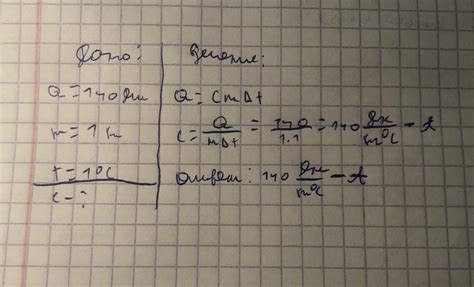 Дано:
Q = 140 Дж
m = 1 к
t = 1°C
c - ?
Решение:
Q = cmΔt
c = Q/mΔt = 140/1.1 = 140 Дж/m°C - А
Ответ: 140 Дж/m°C - А